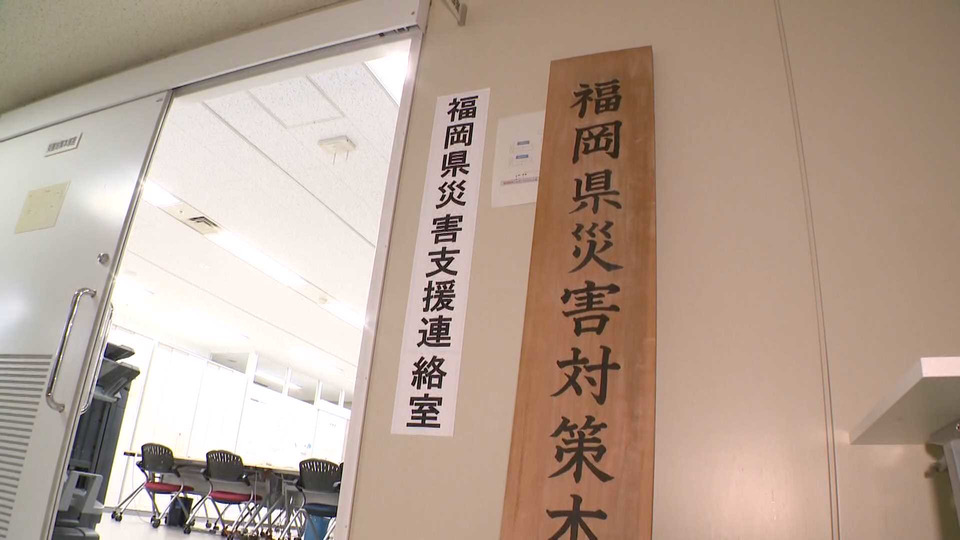 福岡県災害支援連絡室
福岡県災害対策本